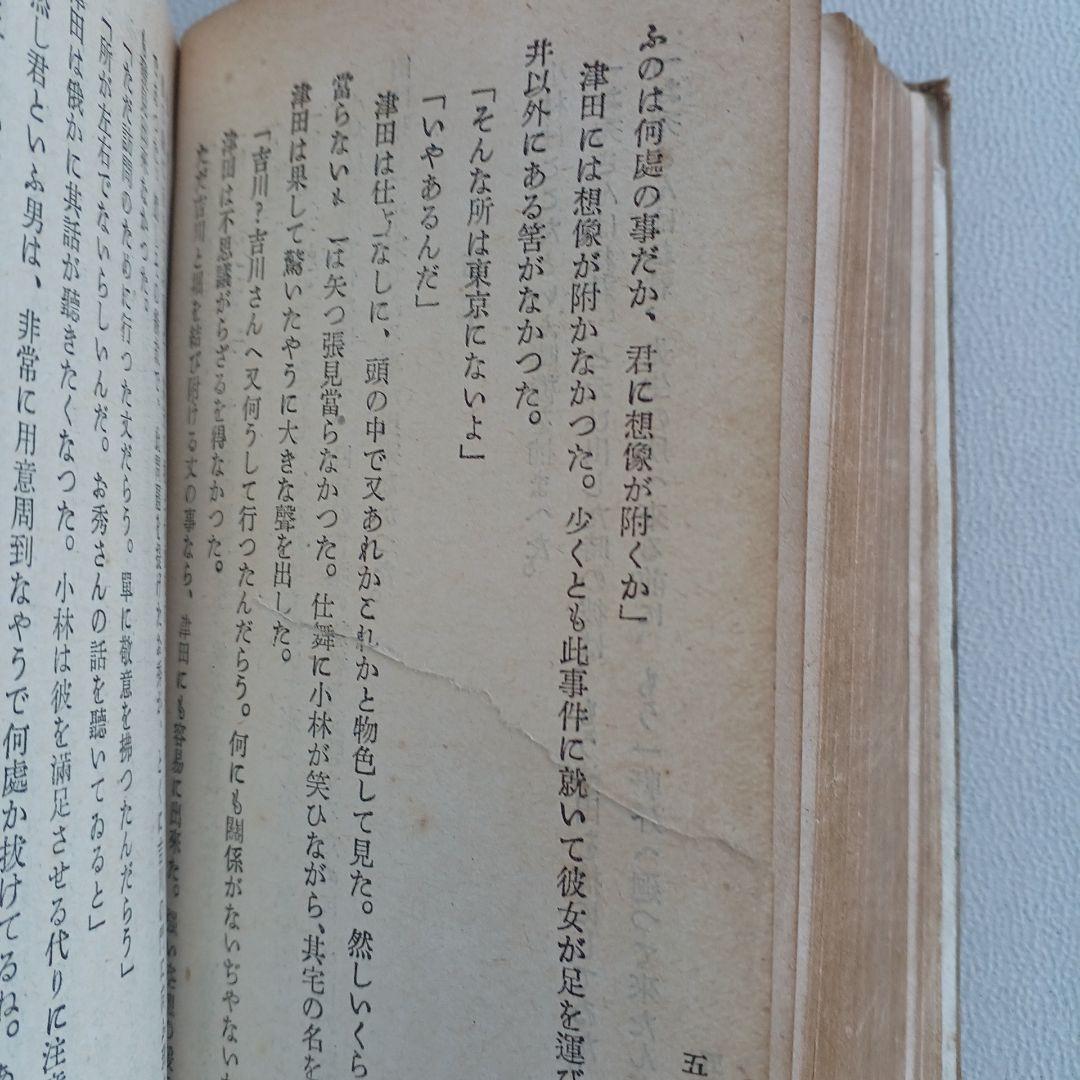 ふのは何處の事だか、君に想像が附くか」
津田には想像が附かなかつた。少くとも此事件に就いて彼女が足を運び
井以外にある筈がなかつた。
「そんな所は東京にないよ」
「いやあるんだ」
津田は仕 なしに、頭の中で又あれかこれかと物色して見た。然しいくら
當らないも は矢つ張見當らなかつた。仕舞に小林が笑ひながら、其宅の名を
津田は果して驚いたやうに大きな聲を出した。
「吉川？吉川さんへ又何うして行つたんだらう。何にも關係がないぢやない
津田は不思議がらざるを得なかつた。
吉川と堀を結び附ける丈の事なら、津田にも容易に出來た。
五
ために行つた丈だらう。單に敬意を拂つたんだらう」
「所が左右でないらしいんだ。お秀さんの話を聽いてゐると」
津田は俄かに其話が聽きたくなつた。小林は彼を滿足させる代りに注
然し君といふ男は、非常に用意周到なやうで何處か拔けてるね。あ